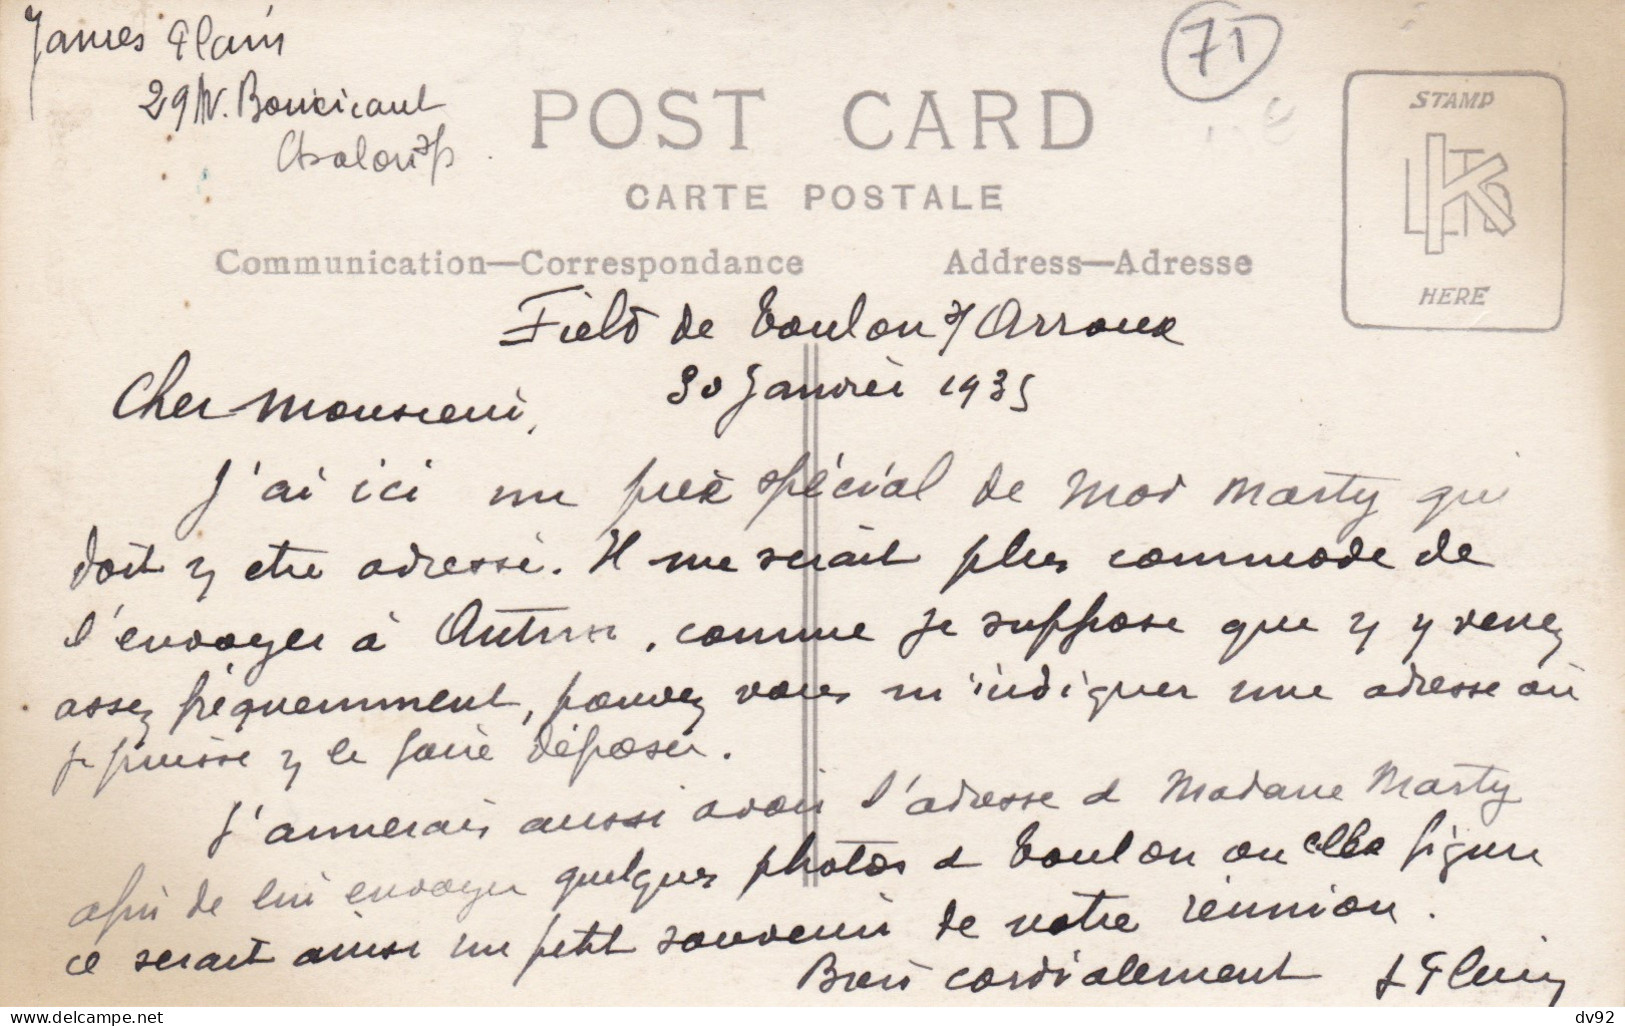 James Plain
29 Av. Boucicaut
Chalon s/s
71
POST CARD
CARTE POSTALE
Communication—Correspondance
Address—Adresse
STAMP
HERE
Field de Toulon s/ Arroux
30 Janvier 1935
Cher Monsieur,
J'ai ici un prix spécial de Mad Marty qui
doit y etre adressé. Il me serait plus commode de
l'envoyer à Autun, comme je suppose que y y venez
assez fréquemment, pouvez vous m'indiquer une adresse où
je puisse y le faire déposer.
J'aimerais aussi avoir l'adresse d Madame Marty
afin de lui envoyer quelques photos d Toulon ou elle figure
ce serait ainsi un petit souvenir de notre réunion.
Bien cordialement
dv92